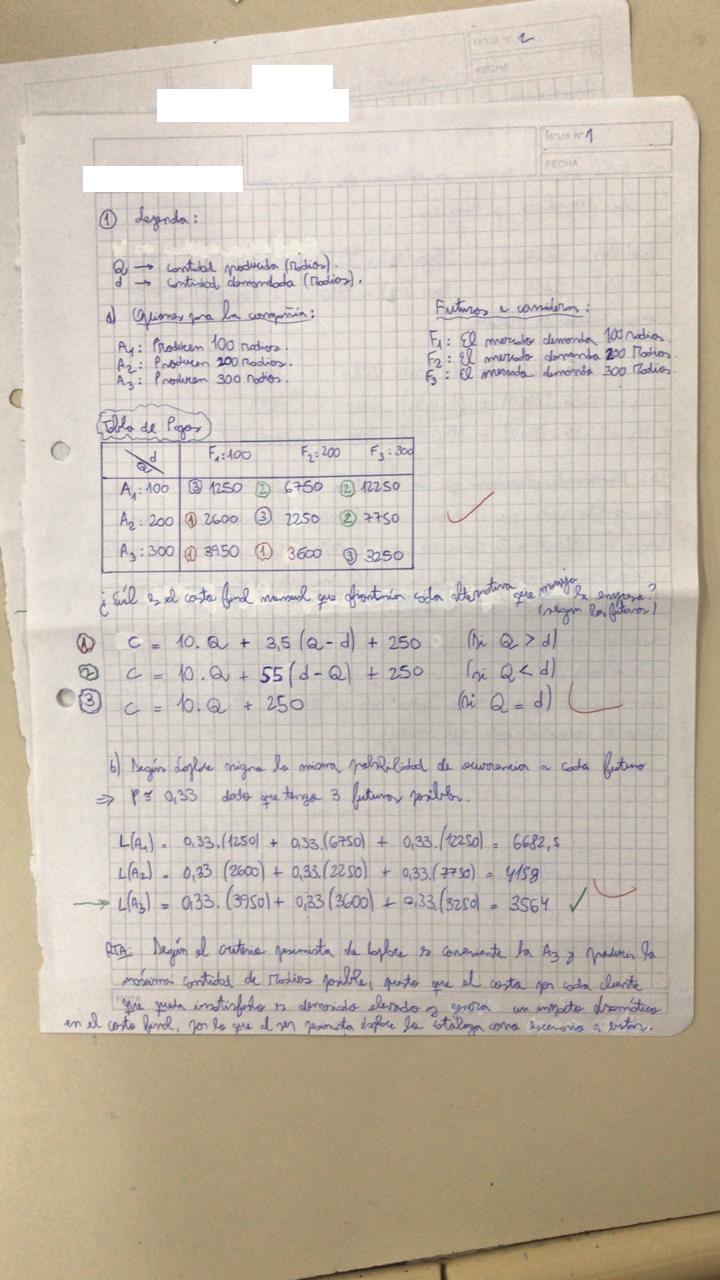 HOJA N° 2
FECHA
HOJA N° 1
FECHA
① Leyenda:
Q → cantidad producida (Radios).
d → cantidad demandada (Radios).
a) Opciones para la compañía:
Futuros a considerar:
A1: Producen 100 radios.
F1: El mercado demanda 100 radios.
A2: Producen 200 radios.
F2: El mercado demanda 200 Radios.
A3: Producen 300 radios.
F3: El mercado demanda 300 Radios.
Tabla de Pagos
Q d F1:100 F2=200 F3=300
A1:100 ③ 1250 ② 6750 ② 12250
A2:200 ① 2600 ③ 2250 ② 7750
A3:300 ① 3950 ① 3600 ③ 3250
¿Cuál es el costo final mensual que afrontaría cada alternativa que maneja la empresa?
(según los futuros)
① C = 10.Q + 3,5(Q-d) + 250 (si Q > d)
② C = 10.Q + 55(d-Q) + 250 (si Q < d)
③ C = 10.Q + 250 (si Q = d)
b) Según Laplace asigna la misma probabilidad de ocurrencia a cada futuro
⇒ P ≅ 0,33 dado que tengo 3 futuros posibles.
L(A1) = 0,33.(1250) + 0,33.(6750) + 0,33.(12250) = 6682,5
L(A2) = 0,33(2600) + 0,33.(2250) + 0,33.(7750) = 4158
→ L(A3) = 0,33.(3950) + 0,33(3600) + 0,33.(3250) = 3564 ✓
RTA: Según el criterio pesimista de Laplace es conveniente la A3 y producir la
máxima cantidad de Radios posible, puesto que el costo por cada cliente
que queda insatisfecho es demasiado elevado y genera un impacto dramático
en el costo final, por lo que al ser pesimista Laplace lo cataloga como escenario a evitar.